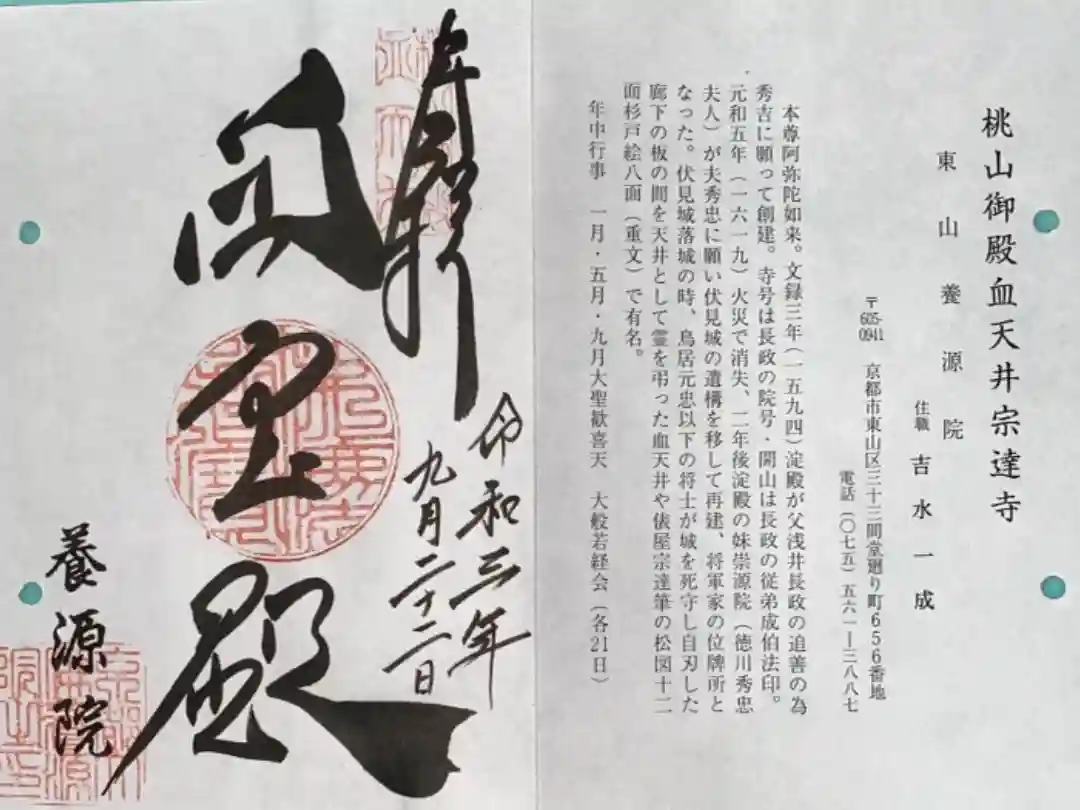 桃山御殿血天井宗達寺
東山養源院
住職 吉水一成
〒605-0941 京都市東山区三十三間堂廻り町656番地
電話(〇七五)五六一ー三八八七
本尊阿弥陀如来。文録三年(一五九四)淀殿が父浅井長政の追善の為
秀吉に願って創建。寺号は長政の院号・開山は長政の従弟成伯法印。
元和五年(一六一九)火災で消失、二年後淀殿の妹崇源院(徳川秀忠
夫人)が夫秀忠に願い伏見城の遺構を移して再建、将軍家の位牌所と
なった。伏見城落城の時、鳥居元忠以下の将士が城を死守し自刃した
廊下の板の間を天井として霊を弔った血天井や俵屋宗達筆の松図十二
面杉戸絵八面(重文)で有名。
年中行事 一月・五月・九月大聖歓喜天 大般若経会(各21日)
令和三年
九月二十二日
養源院